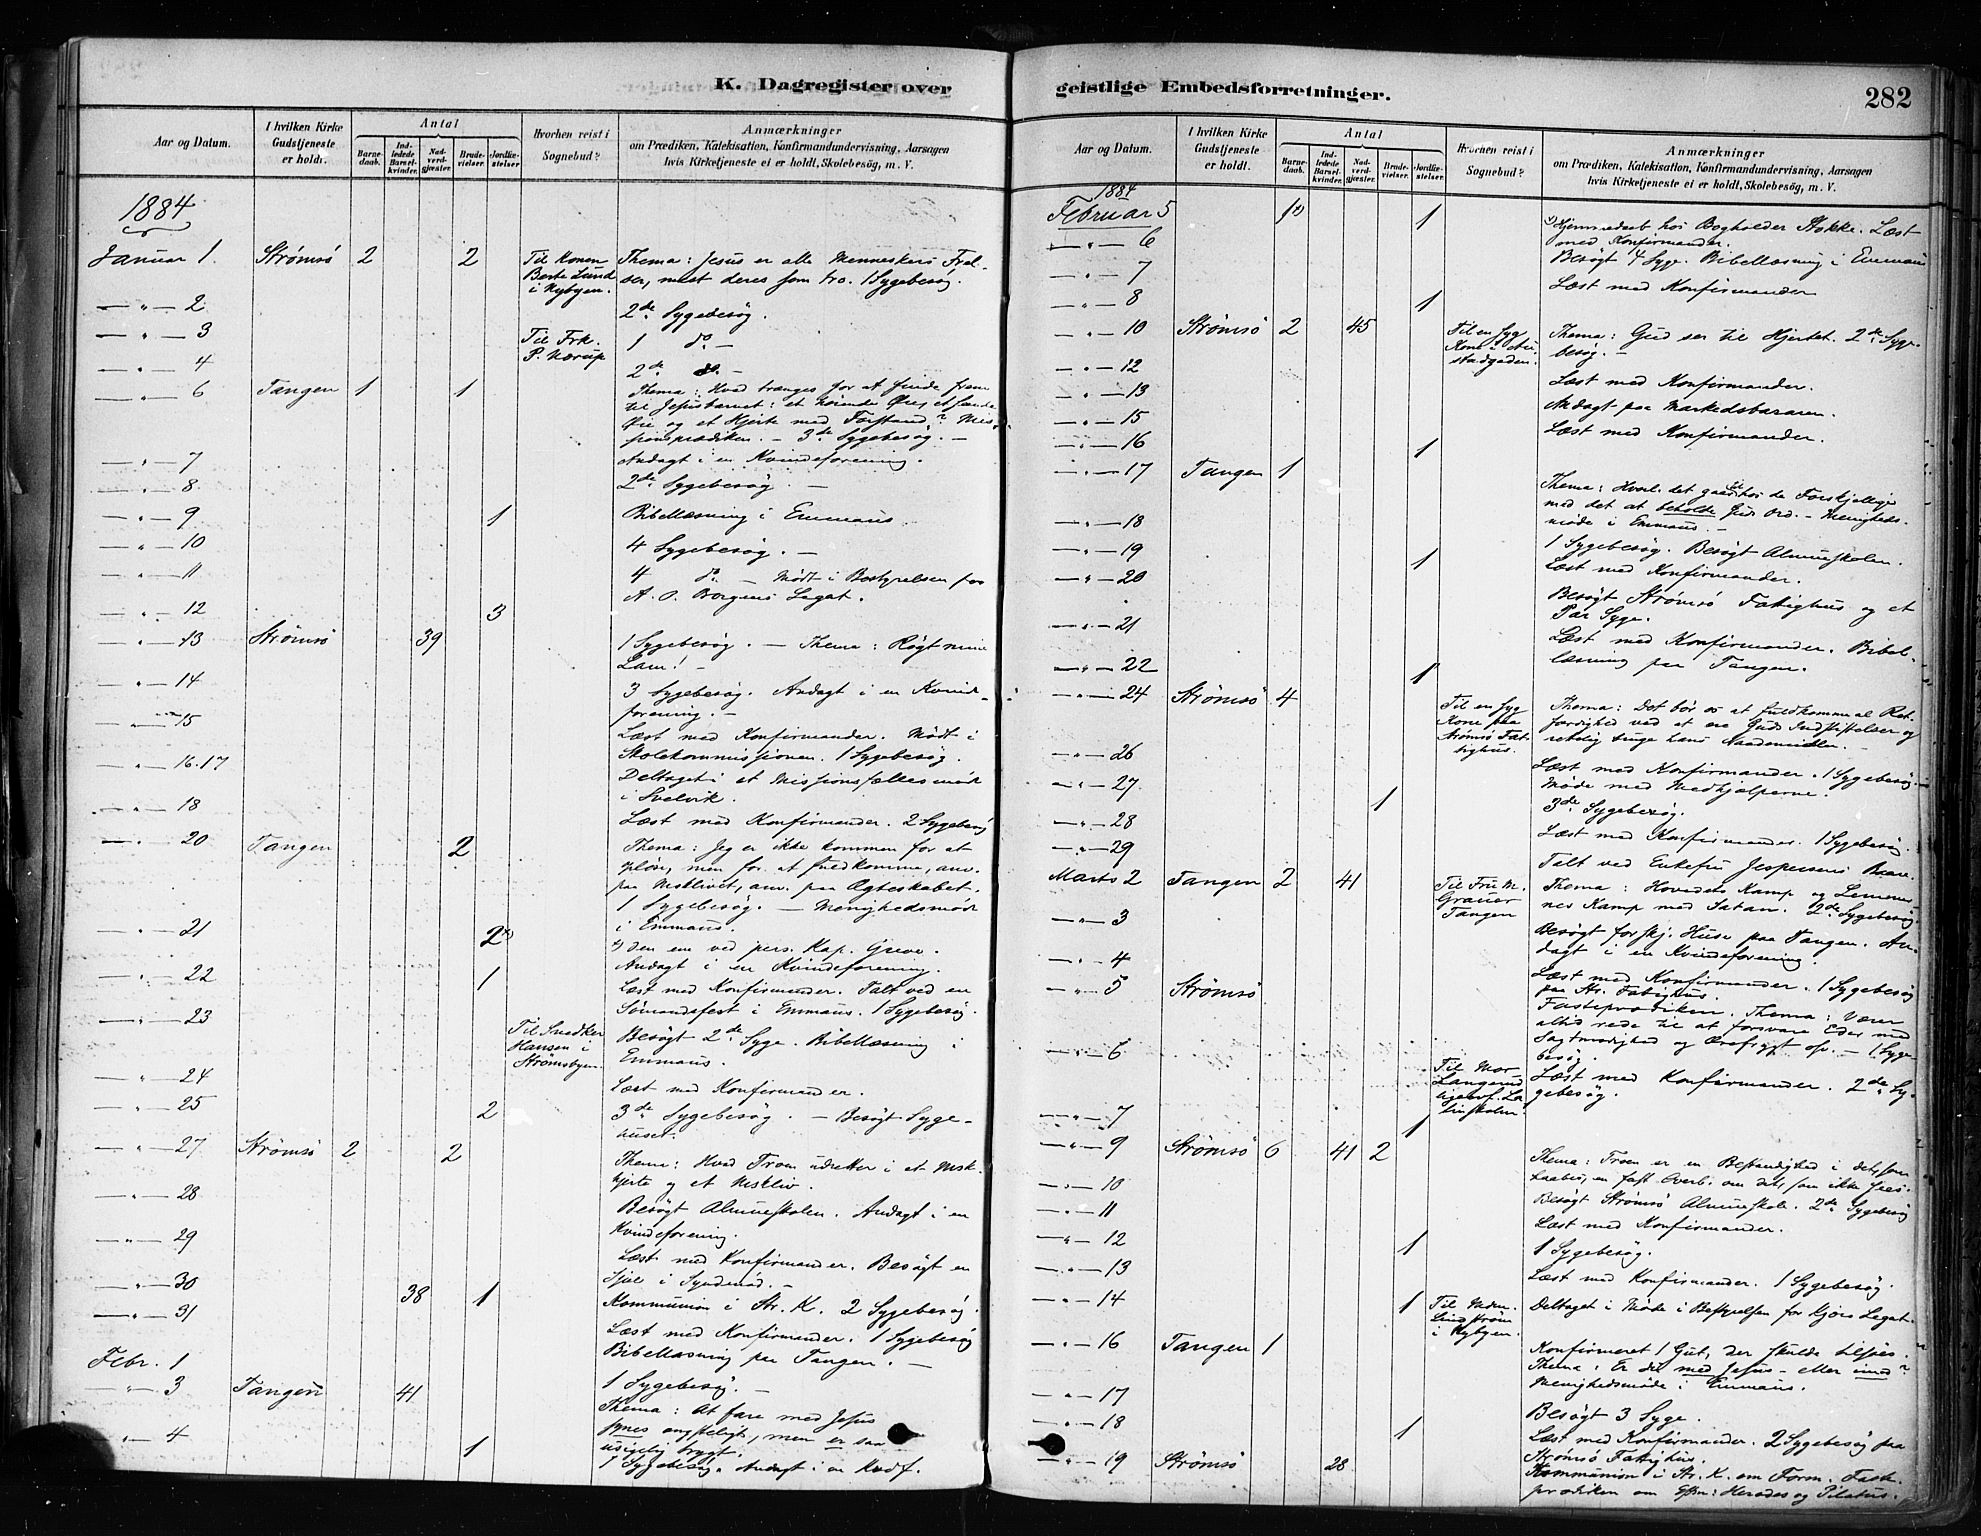 K. Dagregister over
Aar og Datum.
I hvilken Kirke Gudstjeneste er holdt.
Antal
Barnedaab.
Indledede Barselkvinder.
Nadverdgjæster.
Brudevielser.
Jordfæstelser.
Hvorhen reist i Sognebud?
Anmærkninger
om Prædiken, Katekisation, Konfirmandundervisning, Aarsagen
hvis Kirketjeneste ei er holdt, Skolebesøg, m. V.
1884
Januar 1. Strømsö 2 2 Til Konen Thema: Jesus er alle Menneskers Frel-
Berte Lund ser, mest deres som tro. 1 Sygebesög.
i Nybyen.
— " — 2 2de Sygebesøg.
— " — 3 Til Frk. 1 do —
P. Nærup
— " — 4 2de do. —
— " — 6 Tangen 1 1 Thema: Hvad trænges for at finde frem
til Jesusbarnet: et hörende Øre, et
Øie og et Hjerte med Forstand? Mis-
sionsprædiken. — 3de Sygebesøg. —
— " — 7 Andagt i en Kvindeforening.
— " — 8 2de Sygebesøg. —
— " — 9 1 Bibellæsning i Emmaus.
— " — 10 4 Sygebesög. —
— " — 11 4 do. — Mödt i Bestyrelsen for
A. O. Borgens Legat.
— " — 12 3
— " — 13 Strömsö 39 1 Sygebesøg. — Thema: Røgt mine
Lam! —
— " — 14 3 Sygebesøg. Andagt i en Kvinde-
forening. —
— " — 15 Læst med Konfirmander. Mödt i
Skolekommissionen. 1 Sygebesøg.
— " — 16.17 Deltaget i et Missionsfællesmöde
i Svelvik.
— " — 18 Læst med Konfirmander. 2 Sygebesög
— " — 20 Tangen 2 Thema: Jeg er ikke kommen for at
oplöse, men for at fuldkomme, anv.
paa Msklivet, anv. paa Ægteskabet.
1 Sygebesøg. — Menighedsmöde
i Emmaus.
— " — 21 2x) x) den ene ved pers. Kap. Greve.
Andagt i en Kvindeforening.
— " — 22 1 Læst med Konfirmander. Talt ved en
Sömandsfest i Emmaus. 1 Sygebesøg.
— " — 23 Til Snedker Besögt 2de Syge. Bibellæsning i
Hansen i Emmaus.
Strömsbyen.
— " — 24 Læst med Konfirmander.
— " — 25 2 3de Sygebesøg. — Besögt Syge-
huset.
— " — 27 Strömsö 2 2 Thema: Hvad Troen udretter i et Msk.
hjerte og et Mskliv.
— " — 28 Besøgt Almueskolen. Andagt i en
Kvindeforening.
— " — 29 Læst med Konfirmander. Besögt en
Sjæl i Syndenöd. —
— " — 30 38 1 Kommunion i Str. K. 2 Sygebesög.
— " — 31 Læst med Konfirmander. 1 Sygebesög
Bibellæsning paa Tangen. —
Febr. 1 1 Sygebesög. —
— " — 3 Tangen 41 Thema: At fare med Jesus
synes ængsteligt, men er saa
usigelig trygt.
" — 4 1 1 Sygebesög. Andagt i en Kvdf.
geistlige Embedsforretninger. 282
Aar og Datum.
I hvilken Kirke Gudstjeneste er holdt.
Antal
Barnedaab.
Indledede Barselkvinder.
Nadverdgjæster.
Brudevielser.
Jordfæstelser.
Hvorhen reist i Sognebud?
Anmærkninger
om Prædiken, Katekisation, Konfirmandundervisning, Aarsagen
hvis Kirketjeneste ei er holdt, Skolebesøg, m. V.
1884
Februar 5 1x) 1 x) Hjemmedaab hos Bogholder Stokke. Læst
med Konfirmander.
— " — 6 Besögt 4 Syge. Bibellæsning i Emmaus
— " — 7 Læst med Konfirmander
— " — 8 1
— " — 10 Strömsö 2 45 Til en syg Thema: Gud ser til Hjertet. 2de Syge-
Kone i Au- besøg. —
stadgaden.
— " — 12 Læst med Konfirmander.
— " — 13 Andagt paa Markedsbasaren.
— " — 15 Læst med Konfirmander.
— " — 16 1
— " — 17 Tangen 1 Thema: Hvorl. det gaar til hos de Forskjellige
med det at beholde Guds Ord. — Menigheds-
möde i Emmaus. —
— " — 18 1 Sygebesög. Besögt Almueskolen.
— " — 19 1 Læst med Konfirmander.
— " — 20 Besögt Strömsö Fattighus og et
Par Syge.
— " — 21 Læst med Konfirmander. Bibel-
læsning paa Tangen.
— " — 22 1
— " — 24 Strömsö 4 Til en syg Thema: Det bör os at fuldkomme al Ret-
Kone paa færdighed ved at ære Guds Indstiftelser og
Strömsö Fat- rettelig bruge hans Naademidler. —
tighus.
— " — 26 Læst med Konfirmander. 1 Sygebesøg.
Möde med Medhjælperne.
— " — 27 1 3de Sygebesög.
— " — 28 Læst med Konfirmander. 1 Sygebesög.
— " — 29 Talt ved Enkefru Jespersens Baare.
Marts 2 Tangen 2 41 Til Fru M. Thema: Hovedets Kamp og Lemmer-
Grauer nes Kamp med Satan. 2de Sygebesög
Tangen
— " — 3 Besögt forskj. Huse paa Tangen. An-
dagt i en Kvindeforening.
— " — 4 Læst med Konfirmander. 1 Sygebesög
paa Str. Fattighus.
— " — 5 Strömsö Fasteprædiken. Thema: Værer
altid rede til at forsvare Eder med
Sagtmodighed og Ærefrygt osv. — 1 Syge-
besög.
— " — 6 Til Mor Læst med Konfirmander. 2de Sy-
Langerud gebesög.
ligeovf. La-
tinskolen.
— " — 7 1
— " — 9 Strömsö 6 41 2 Thema: Troen er en Bestandighed i det, som
haabes, en fast Overb. om det, som ikke sees.
— " — 10 Besögt Strömsö Almueskole. 2de Sygebesög
— " — 11 Læst med Konfirmander.
— " — 12 1 1 Sygebesög.
— " — 13 Læst med Konfirmander. 1 Sygebesög.
— " — 14 1 Til Mdm. Deltaget i Möde i Bestyrelsen for Kjörs Legat.
Lindström
i Nybyen.
— " — 16 Tangen 1 Konfirmeret 1 Gut, der skulde tilsjøs.
Thema: Er du med Jesus — eller imod?
Menighedsmöde i Emmaus.
— " — 17 Besögt 3 Syge.
— " — 18 1 Læst med Konfirmander. 2 Sygebesög paa
Strömsö Fattighus.
— " — 19 Strömsö 28 Kommunion i Str. K. om Form. Faste-
prædiken om Eftm: Herodes og Pilatus.